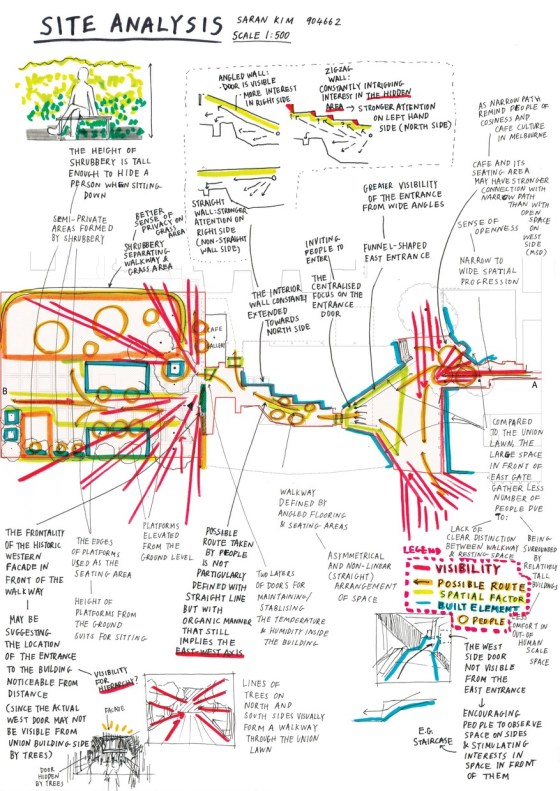 SITE ANALYSIS
SARAN KIM 904662
SCALE 1:500
THE HEIGHT OF
SHRUBBERY IS TALL
ENOUGH TO HIDE A
PERSON WHEN SITTING
DOWN
ANGLED WALL:
• DOOR IS VISIBLE
• MORE INTEREST
IN RIGHT SIDE
ZIGZAG
WALL:
CONSTANTLY INTRIGUING
INTEREST IN THE HIDDEN
AREA → STRONGER ATTENTION
ON LEFT HAND
SIDE (NORTH SIDE)
STRAIGHT
WALL: STRONGER
ATTENTION ON
RIGHT SIDE
(NON-STRAIGHT
WALL SIDE)
AS NARROW PATH
REMIND PEOPLE OF
COSINESS AND
CAFE CULTURE
IN MELBOURNE
CAFE AND ITS
SEATING AREA
MAY HAVE STRONGER
CONNECTION WITH
NARROW PATH
THAN WITH
OPEN
SPACE
ON
WEST
SIDE
(MSD)
SENSE OF
OPENNESS
NARROW TO
WIDE SPATIAL
PROGRESSION
GREATER VISIBILITY
OF THE ENTRANCE
FROM WIDE ANGLES
FUNNEL-SHAPED
EAST ENTRANCE
INVITING
PEOPLE TO
ENTER
THE
CENTRALISED
FOCUS ON THE
ENTRANCE
DOOR
THE INTERIOR
WALL CONSTANTLY
EXTENDED
TOWARDS
NORTH SIDE
SEMI-PRIVATE
AREAS FORMED
BY SHRUBBERY
BETTER
SENSE OF
PRIVACY ON
GRASS
AREA
SHRUBBERY
SEPARATING
WALKWAY &
GRASS AREA
CAFE
+
B
A
COMPARED
TO THE UNION
LAWN, THE
LARGE SPACE
IN FRONT OF
EAST GATE
GATHER LESS
NUMBER OF
PEOPLE DUE
TO:
LACK OF
CLEAR DISTINCTION
BETWEEN WALKWAY
& RESTING SPACE
BEING
SURROUNDED
BY
RELATIVELY
TALL
BUILDINGS
LESS
COMFORT IN
OUT-OF
HUMAN
SCALE
SPACE
LEGEND
VISIBILITY
POSSIBLE ROUTE
SPATIAL FACTOR
BUILT ELEMENT
PEOPLE
WALKWAY
DEFINED BY
ANGLED FLOORING
& SEATING AREAS
ASYMMETRICAL
AND NON-LINEAR
(STRAIGHT)
ARRANGEMENT
OF SPACE
TWO LAYERS
OF DOORS FOR
MAINTAINING/
STABLISING
THE TEMPERATURE
& HUMIDITY INSIDE
THE BUILDING
POSSIBLE
ROUTE TAKEN
BY PEOPLE
IS NOT
PARTICULARLY
DEFINED WITH
STRAIGHT LINE
BUT WITH
ORGANIC MANNER
THAT STILL
IMPLIES THE
EAST-WEST AXIS
PLATFORMS
ELEVATED
FROM THE
GROUND LEVEL
THE EDGES
OF PLATFORMS
USED AS THE
SEATING AREA
HEIGHT OF
PLATFORMS FROM
THE GROUND
SUITS FOR SITTING
THE FRONTALITY
OF THE HISTORIC
WESTERN
FACADE IN
FRONT OF THE
WALKWAY
MAY BE
SUGGESTING
THE LOCATION
OF THE ENTRANCE
TO THE BUILDING
NOTICEABLE FROM
DISTANCE
(SINCE THE ACTUAL
WEST DOOR MAY NOT
BE VISIBLE FROM
UNION BUILDING SIDE
BY TREES)
VISIBILITY
FOR
HIERARCHY?
FACADE
DOOR
HIDDEN
BY TREES
LINES OF
TREES ON
NORTH AND
SOUTH SIDES VISUALLY
FORM A WALKWAY
THROUGH THE UNION
LAWN
THE WEST
SIDE DOOR
NOT VISIBLE
FROM THE
EAST ENTRANCE
ENCOURAGING
PEOPLE TO OBSERVE
SPACE ON SIDES
& STIMULATING
INTERESTS IN
SPACE IN FRONT OF
THEM
E.G.
STAIRCASE